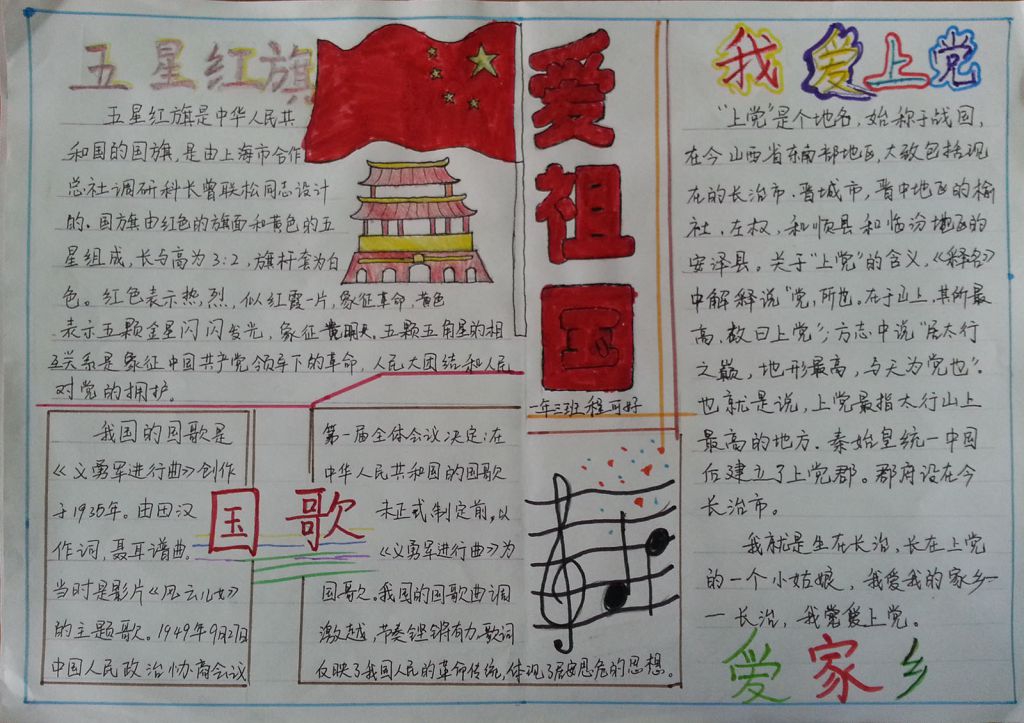 五星红旗
五星红旗是中华人民共
和国的国旗,是由上海市合作
总社调研科长曾联松同志设计
的.国旗由红色的旗面和黄色的五
星组成,长与高为3:2,旗杆套为白
色。红色表示热烈,似红霞一片,象征革命,黄色
表示五颗金星闪闪发光,象征光明.五颗五角星的相
互关系是象征中国共产党领导下的革命,人民大团结和人民
对党的拥护。
爱祖国
一年三班程可好
国歌
我国的国歌是
《义勇军进行曲》创作
于1935年。由田汉
作词,聂耳谱曲.
当时是影片《风云儿女》
的主题歌.1949年9月27日
中国人民政治协商会议
第一届全体会议决定:在
中华人民共和国的国歌
未正式制定前,以
《义勇军进行曲》为
国歌.我国的国歌曲调
激越,节奏铿锵有力.歌词
反映了我国人民的革命传统,体现了居安思危的思想。
我爱上党
"上党"是个地名,始称于战国,
在今山西省东南部地区,大致包括现
在的长治市.晋城市,晋中地区的榆
社.左权,和顺县和临汾地区的
安泽县。关于"上党"的含义,《释名》
中解释说"党,所也。在于山上,其所最
高,故曰上党";方志中说"居太行
之巅,地形最高,与天为党也".
也就是说,上党最指太行山上
最高的地方.秦始皇统一中国
后建立了上党郡。郡府设在今
长治市。
我就是生在长治,长在上党
的一个小姑娘,我爱我的家乡—
—长治,我爱上党。
爱家乡